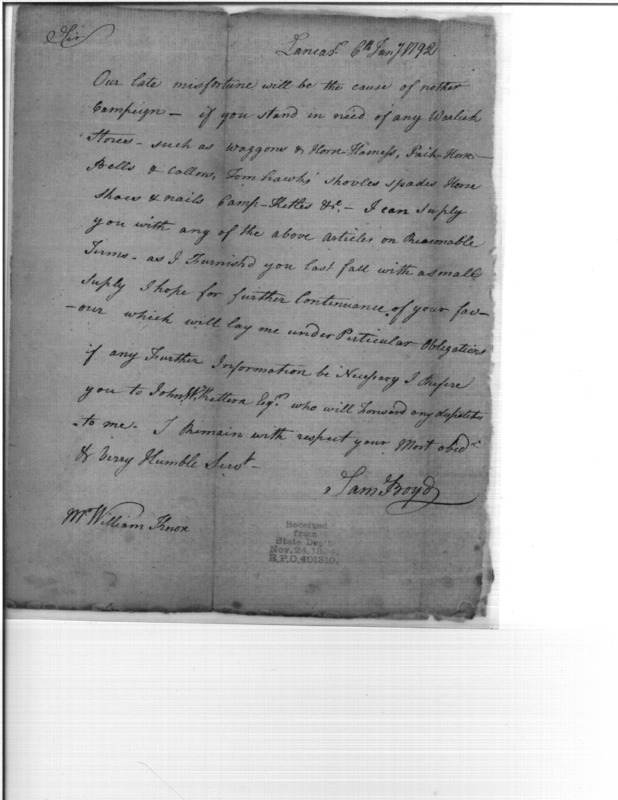 Sir
Lancasr. 6th Jany 1792
Our late misfortune will be the cause of nother
Campaign – if you stand in need of any Warlick
Stores – such as waggons & Horse Harness, Pack-Horse
Bells & Collors, Tomhawks shovles spades Horse
Shoes & nails Camp-Kettles &c. – I can Suply
you with any of the above articles on Reasonable
Terms – as I Furnish'd you last fall with a small
Suply I hope for further Continuance of your fav–
–our which will lay me under Perticular Obligations
if any Further Information be Nessesary I Refere
you to John W. Kittera Esqr. who will Forward any dispatches
to me – I Remain with respect your Most obedt
& Verry Humble Servt –
Saml Boyd
Mr William Knox
Received
from
State Dept.
Nov. 24, 1894.
R.P.O. 491310.